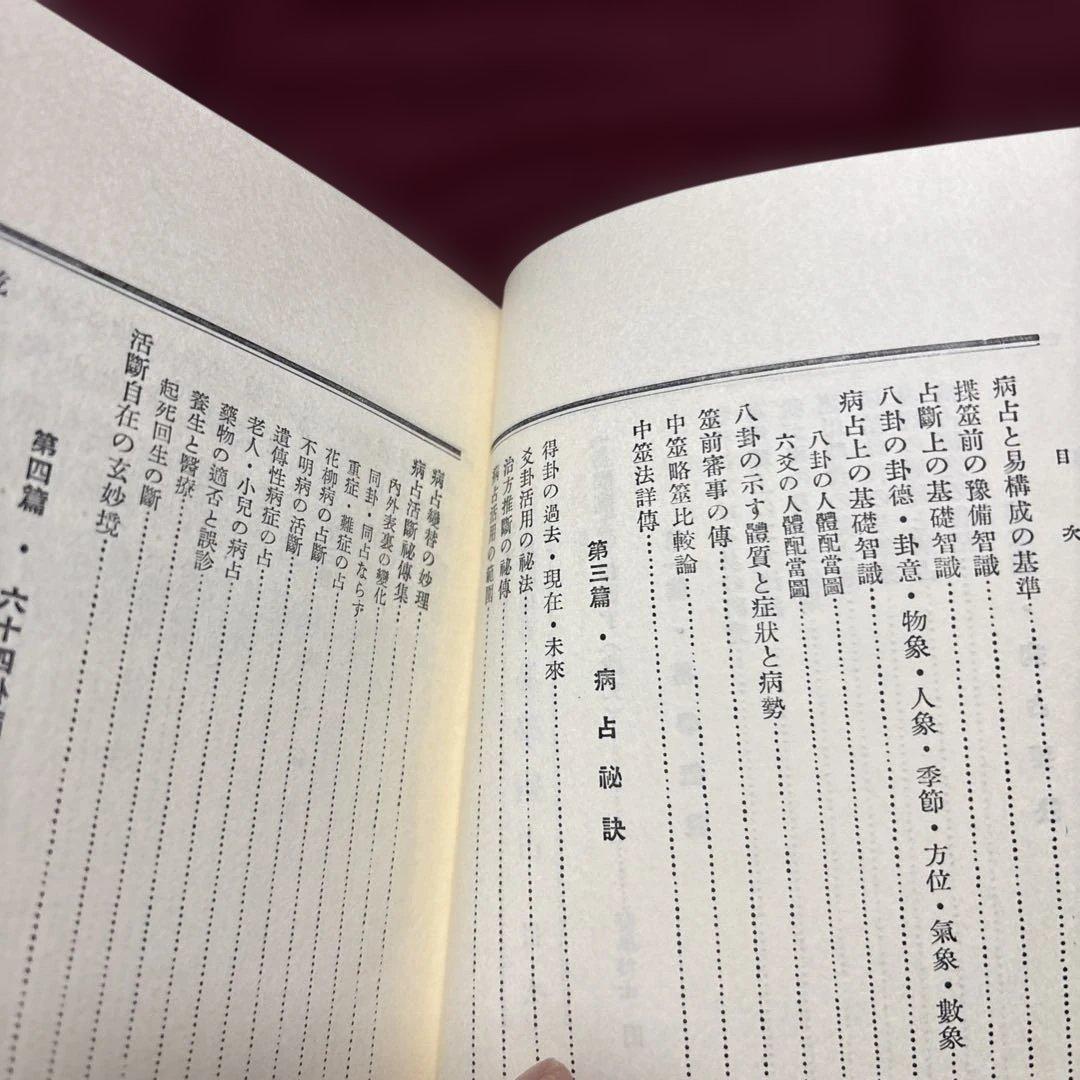 目次
病占と易構成の基準
揲筮前の豫備智識
占斷上の基礎智識
八卦の卦德・卦意・物象・人象・季節・方位・氣象・數象
病占上の基礎智識
八卦の人體配當圖
六爻の人體配當圖
八卦の示す體質と症狀と病勢
筮前審事の傳
中筮略筮比較論
中筮法詳傳
第三篇・病占祕訣
得卦の過去・現在・未來
爻卦活用の祕法
治方推斷の祕傳
病占活用の範圍
病占變替の妙理
病占活斷祕傳集
內外表裏の變化
同卦・同占ならず
重症・難症の占
花柳病の占斷
不明病の活斷
遺傳性病症の占
老人・小兒の病占
藥物の適否と誤診
養生と醫療
起死回生の斷
活斷自在の玄妙境
第四篇・六十四卦